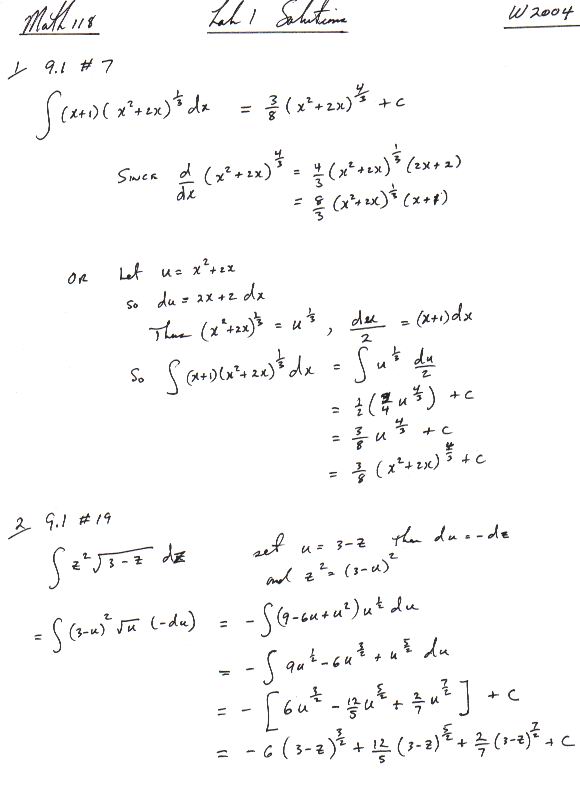 Math 118 Lab 1 Solutions W2004
1 9.1 #7
∫(x+1)(x²+2x)^{1/3} dx = 3/8 (x²+2x)^{4/3} + C
Since d/dx (x²+2x)^{4/3} = 4/3 (x²+2x)^{1/3} (2x+2)
= 8/3 (x²+2x)^{1/3} (x+1)
OR Let u = x²+2x
so du = 2x+2 dx
Thus (x²+2x)^{1/3} = u^{1/3}, du/2 = (x+1)dx
So ∫(x+1)(x²+2x)^{1/3} dx = ∫ u^{1/3} du/2
= 1/2 (3/4 u^{4/3}) + C
= 3/8 u^{4/3} + C
= 3/8 (x²+2x)^{4/3} + C
2 9.1 #19
∫ z² √(3-z) dz set u = 3-z then du = -dz
and z² = (3-u)²
= ∫(3-u)² √u (-du) = -∫(9-6u+u²) u^{1/2} du
= -∫ 9u^{1/2} - 6u^{3/2} + u^{5/2} du
= -[6u^{3/2} - 12/5 u^{5/2} + 2/7 u^{7/2}] + C
= -6(3-z)^{3/2} + 12/5 (3-z)^{5/2} + 2/7 (3-z)^{7/2} + C